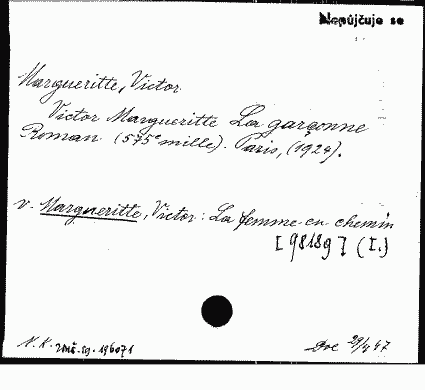 Nepůjčuje se
Margueritte, Victor
Victor Margueritte La garçonne
Roman (575e mille). Paris, (1924).
v. Margueritte, Victor: La femme en chemin
[98189] (I.)
N.K. 196071
Dvc 29/4 47